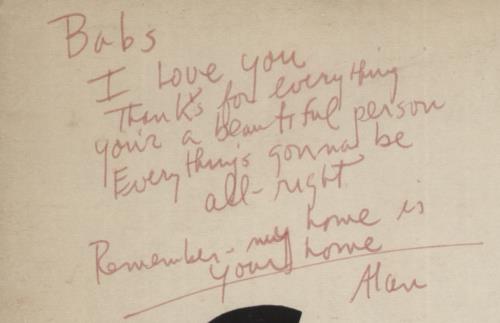 Babs
I love you
Thanks for everything
you're a beautiful person
Everything's gonna be
all-right
Remember - my home is
your home
Alan